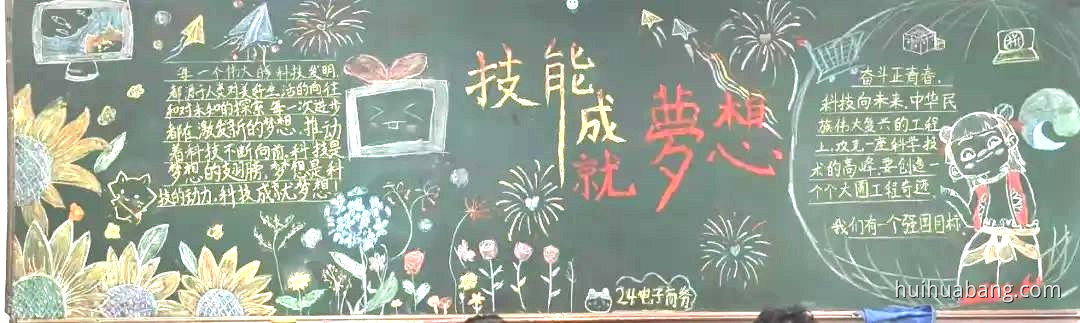 每一个伟大的科技发明,
都源于人类对美好生活的向往
和对未知的探索.每一次进步
都在激发新的梦想,推动
着科技不断向前,科技是
梦想的翅膀,梦想是科
技的动力,科技成就梦想!
技能
成
就
夢想
24电子商务
奋斗正青春,
科技向未来,中华民
族伟大复兴的工程
上,攻克一座科学技
术的高峰.要创造一
个个大国工程奇迹
我们有一个强国目标
huihuabang.com